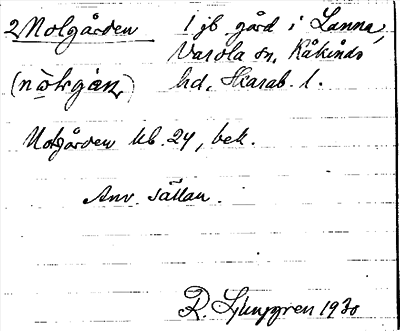 2 Notgården 1 jb gård i Lanna,
Varola sn, Kåkinds
hd, Skarab. l.
Notgården kb. 24, beb.
Anv. sällan.
R. Ljunggren 1930